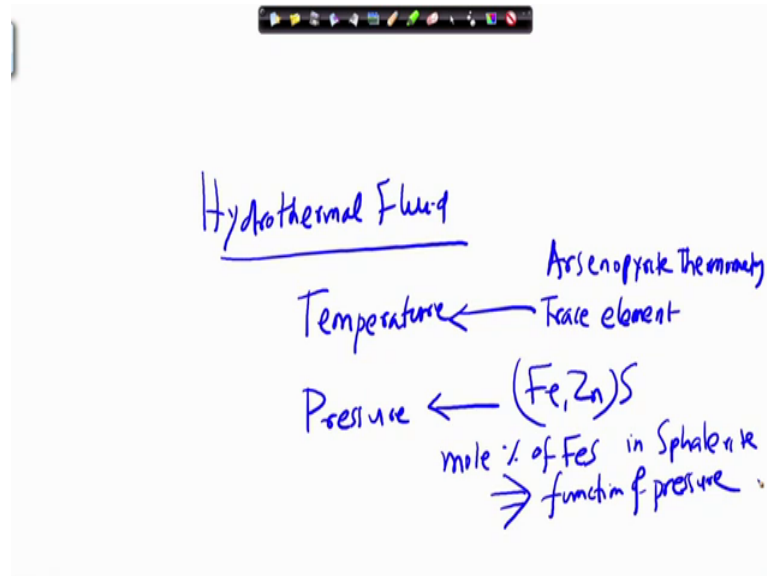 Hydrothermal Fluid
Arsenopyrite Thermometry
Temperature ← Trace element
Pressure ← (Fe,Zn)S
mole % of FeS in Sphalerite
⇒ function of pressure